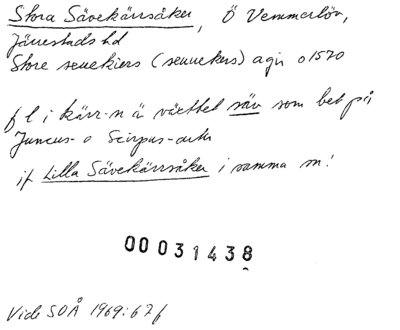 Stora Sävekärrsåker, Ö Vemmerlöv,
Järrestads hd
Store seuekiers (seuuekers) agir o 1570
f l i kärr-n ä växtbet säv som bet på
Juncus- o Scirpus-arter
jf Lilla Sävekärrsåker i samma sn!
00031438
Vide SOÅ 1969:67 f